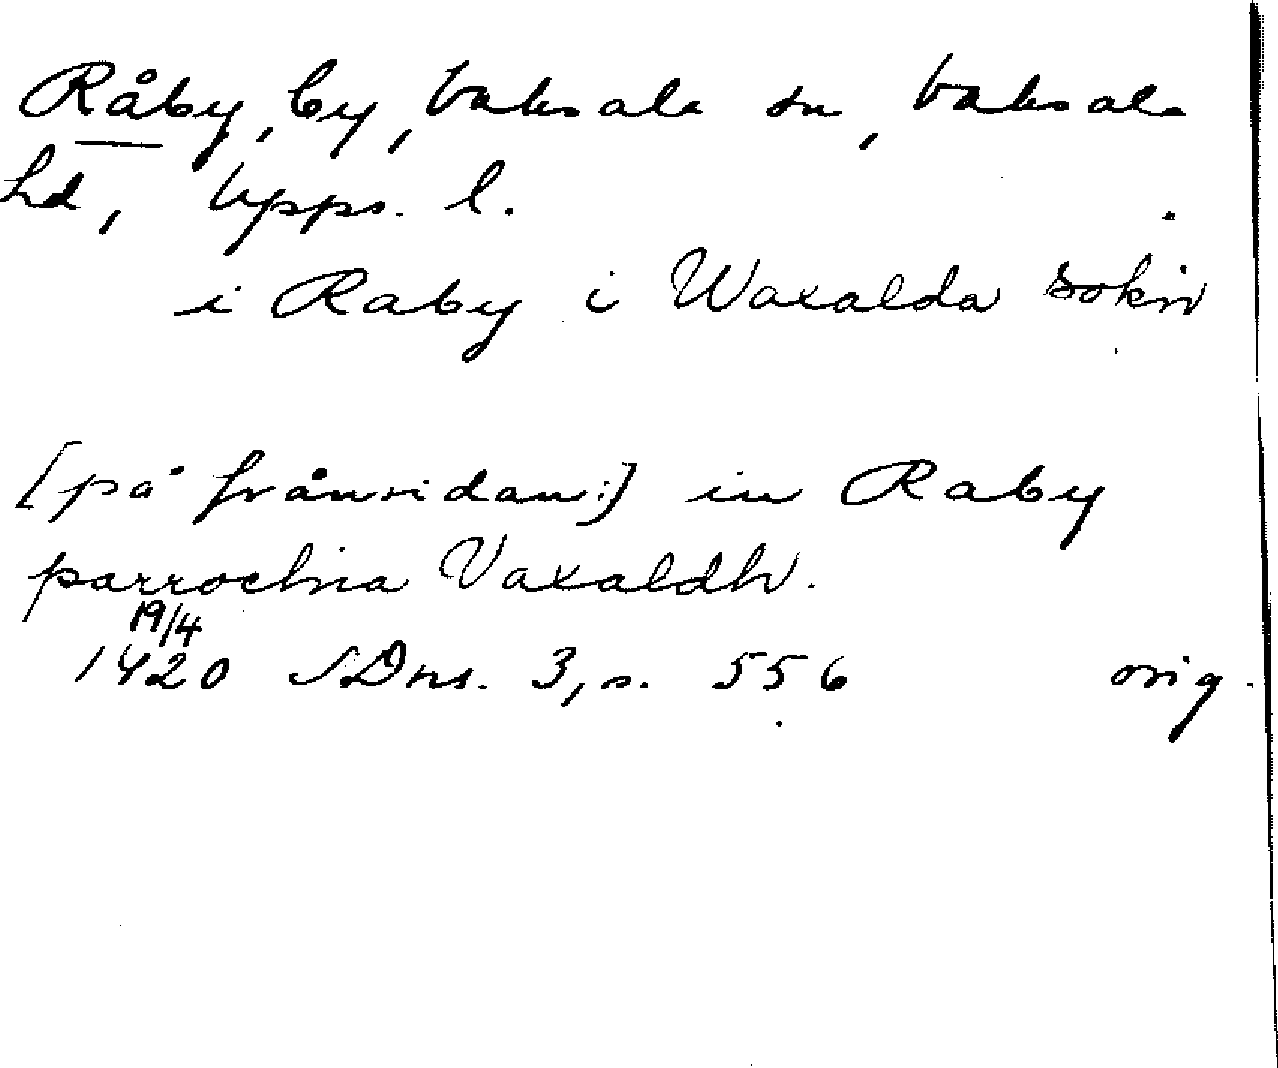 Råby, by, Vaksala sn, Vaksala
hd, Upps. l.
i Raby i Waxalda sokn
[på frånsidan:] in Raby
parrochia Vaxaldh.
19/4
1420 SDns. 3, s. 556 orig.